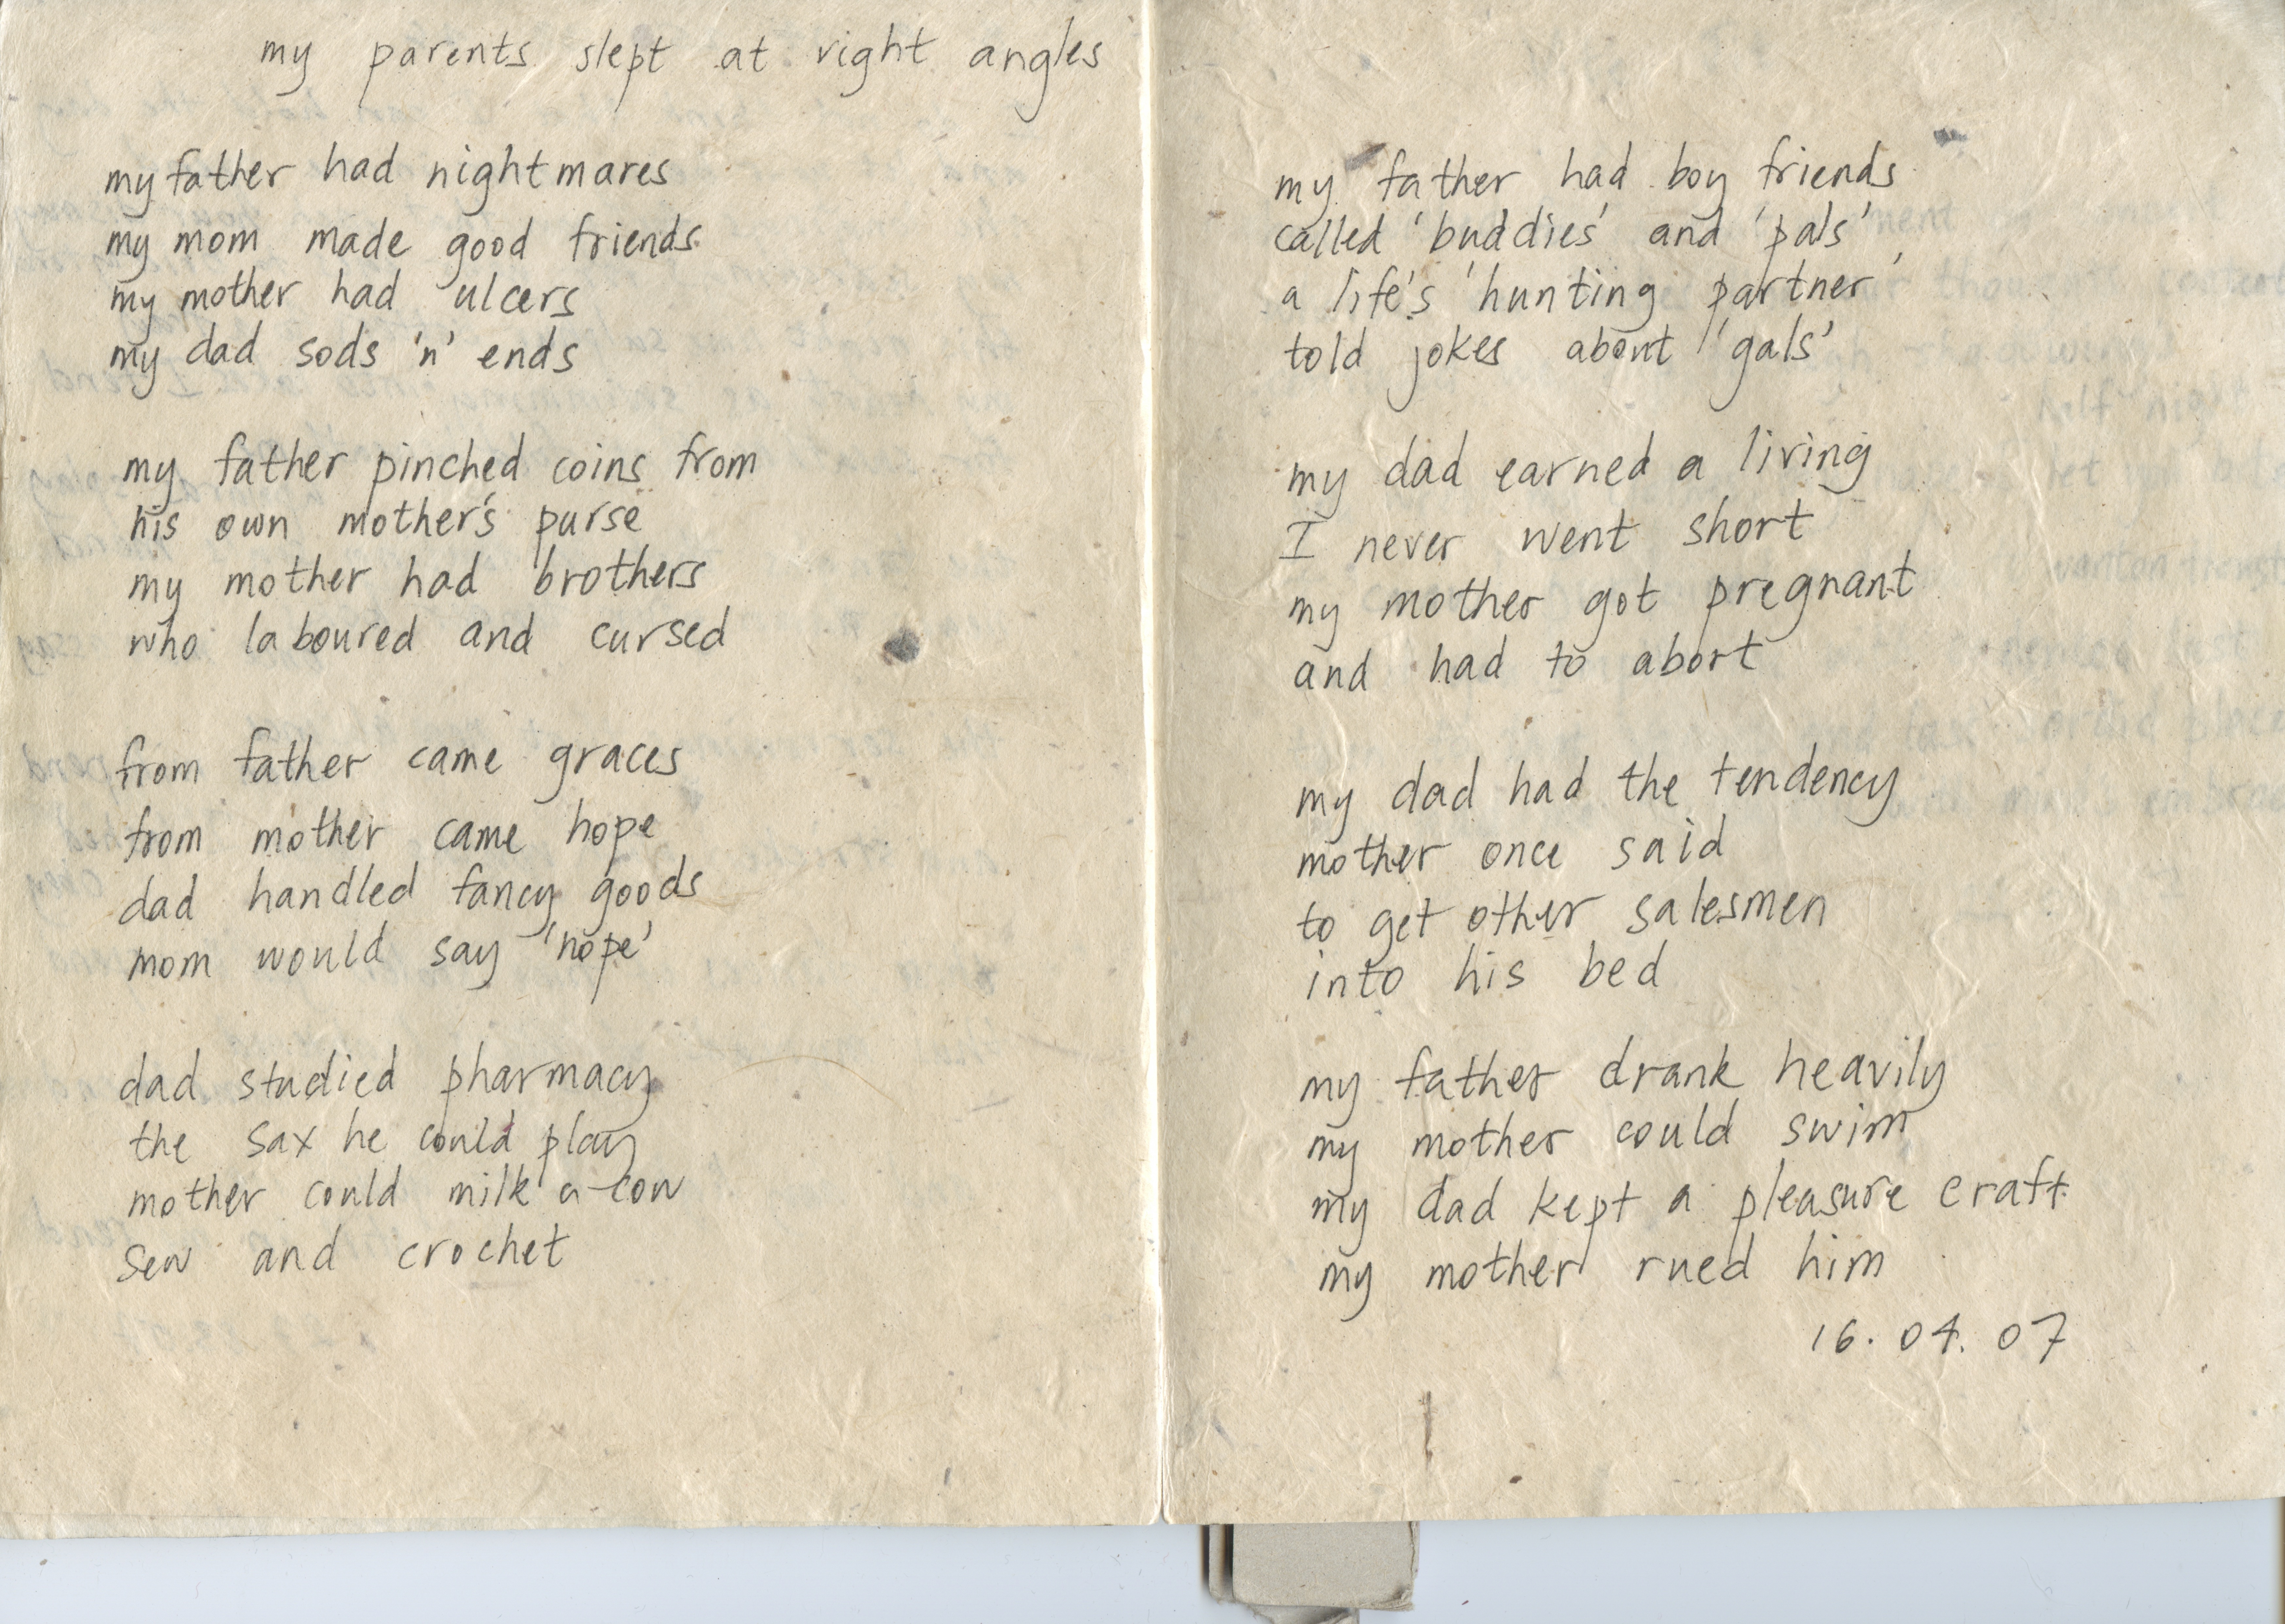 my parents slept at right angles
my father had nightmares
my mom made good friends
my mother had ulcers
my dad sods 'n' ends
my father pinched coins from
his own mother's purse
my mother had brothers
who laboured and cursed
from father came graces
from mother came hope
dad handled fancy goods
mom would say 'nope'
dad studied pharmacy
the sax he could play
mother could milk a cow
sew and crochet
my father had boy friends
called 'buddies' and 'pals'
a life's 'hunting partner'
told jokes about 'gals'
my dad earned a living
I never went short
my mother got pregnant
and had to abort
my dad had the tendency
mother once said
to get other salesmen
into his bed
my father drank heavily
my mother could swim
my dad kept a pleasure craft
my mother rued him
16.04.07